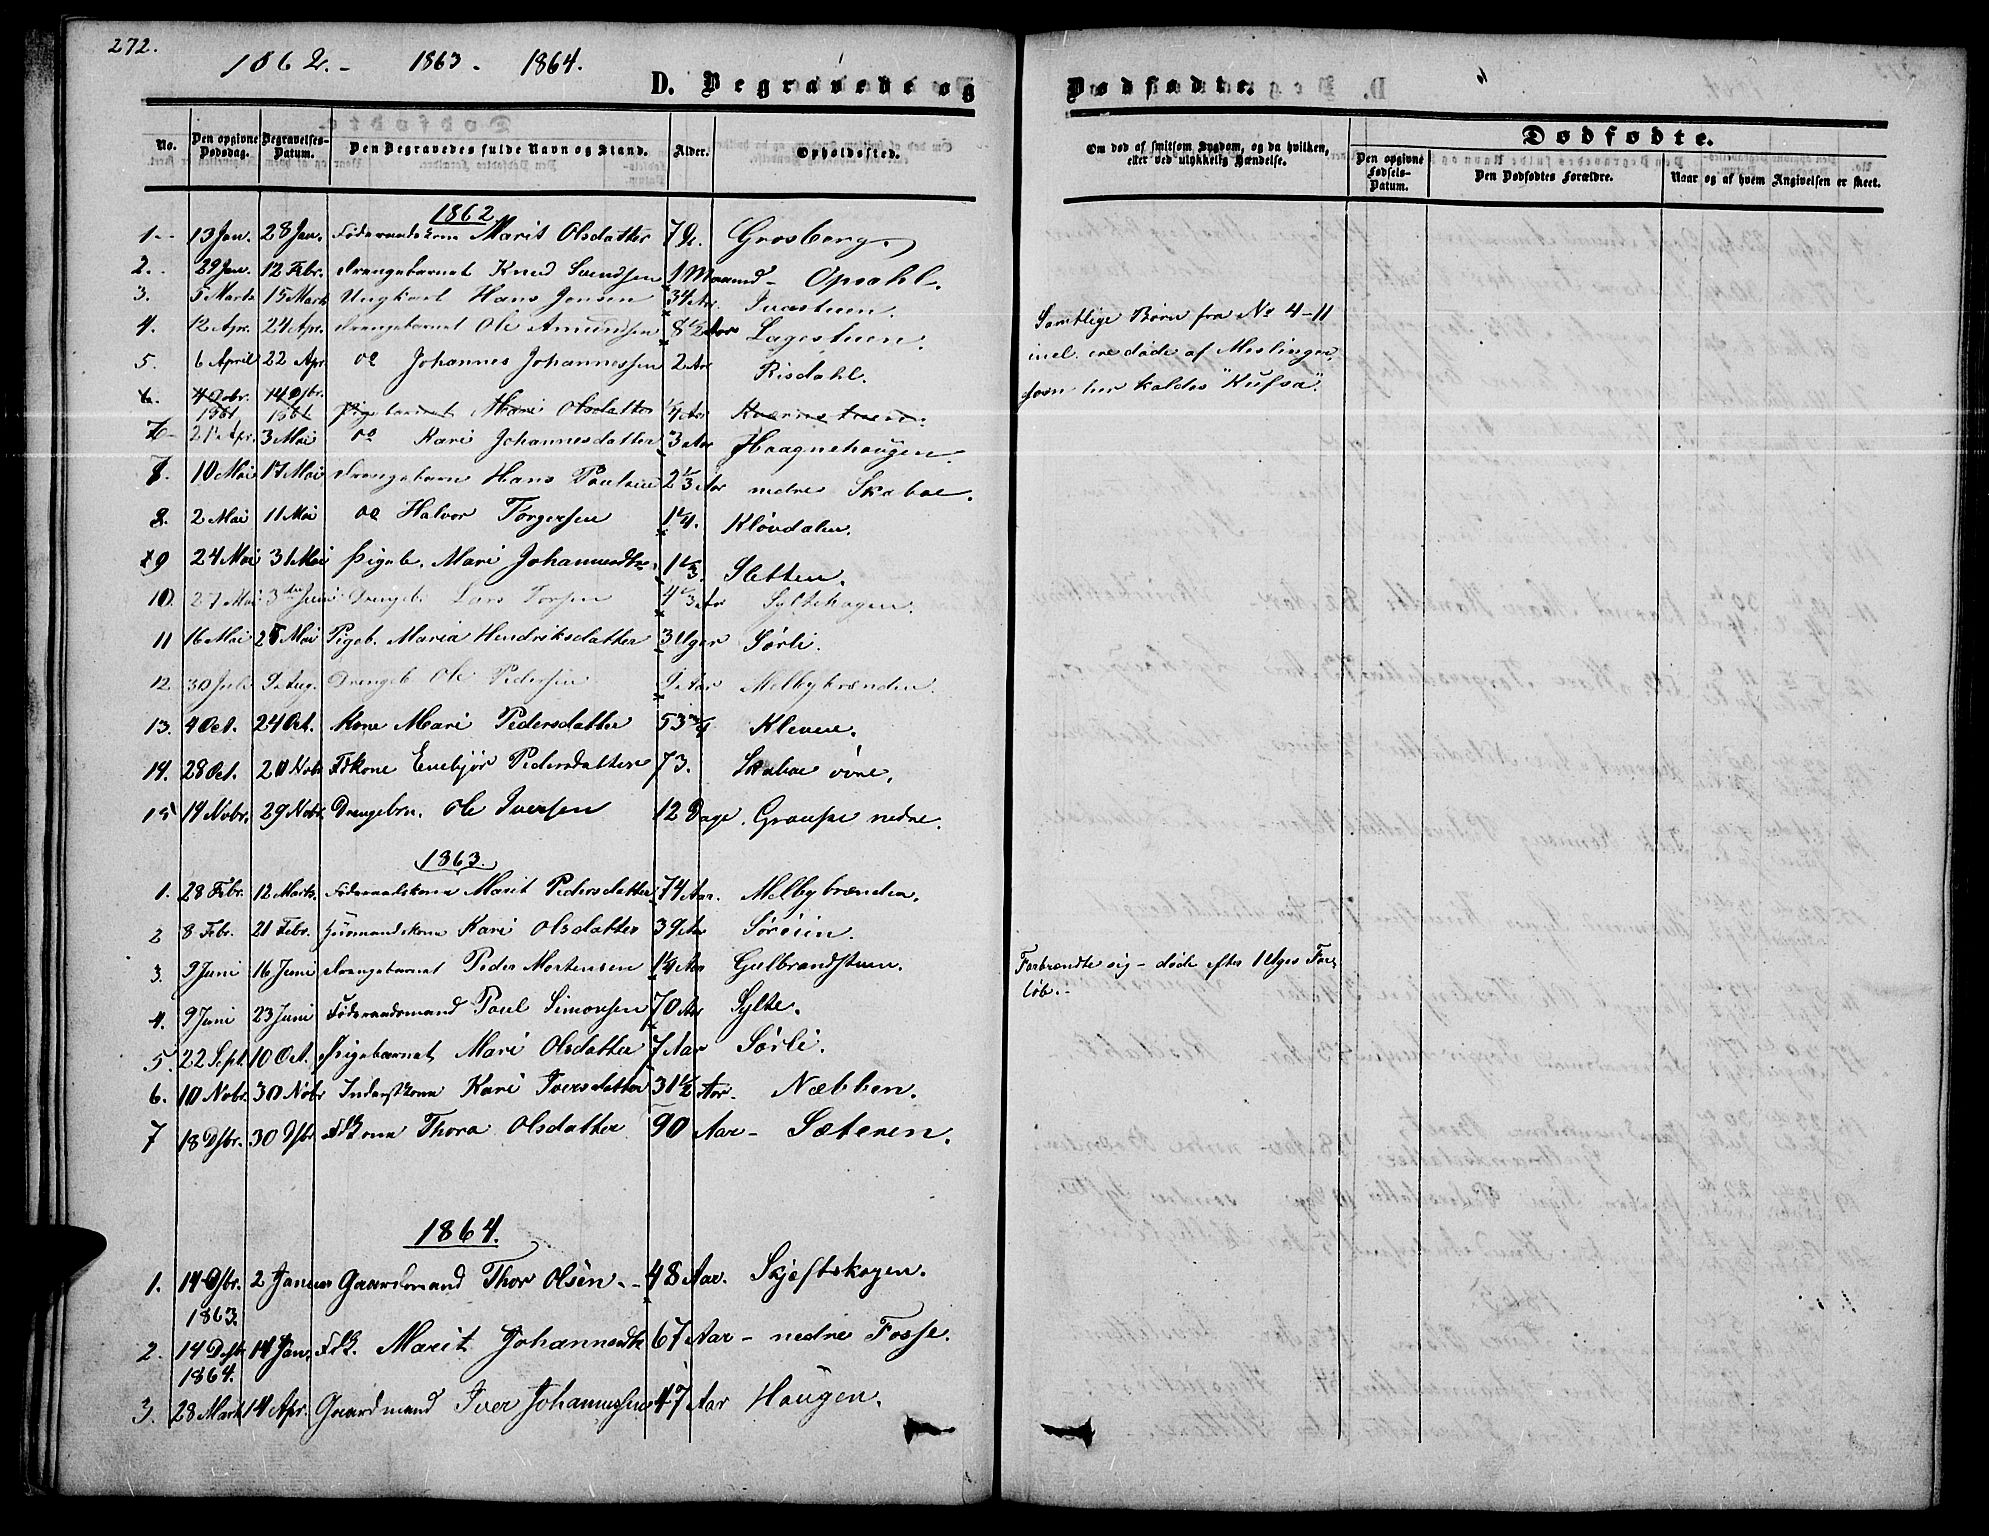 272.
1862.- 1863- 1864.
D. Begravede og
Dødfødte.
No. Den opgivne Dødsdag. Begravelses-Datum. Den Begravedes fulde Navn og Stand. Alder. Opholdssted.
Om død af smitsom Sygdom, og da hvilken, eller ved ulykkelig Hændelse.
Dødfødte.
Den opgivne Fødsels-Datum. Den Dødfødtes Forældre. Naar og af hvem Angivelsen er skeet.
1862
1 13 Jan. 28 Jan. Føderaadskone Marit Olsdatter Grosberg.
2. 29 Jan. 12 Febr. Drengebarnet Knud Svendsen 1 Maaned - Opsahl.
3. 5 Marts 15 Marts Ungkarl Hans Jensen 34 Aar
4. 12 Apr. 24 Apr. Drengebarnet Ole Amundsen 8 1/2 Aar Lagestuen.
5. 6 April 22 Apr. do Johannes Johannessen 2 Aar Risdahl.
6. 4 Octbr. 1861 14 Dsbr. 1861 Pigebarnet Mari Olsdatter 1/4 Aar
7 21 Apr. 3 Mai do Kari Johannesdatter 3 Aar Haagnehougen.
10 Mai 17 Mai Drengebarn Hans Paulsen 2 1/3 Aar nedre Skaboe.
8. 2 Mai 11 Mai do Halvor Torgersen 1 1/4. Kløvdalen.
9 24 Mai 31 Mai Pigeb. Mari Johannesdtr. 1 1/3. Sletten.
10. 27 Mai 3die Juni Drengeb. Lars Torsen 4 1/3 Aar Syltehagen.
11 16 Mai 25 Mai Pigeb. Maria Hendriksdatter 3 Uger Sørli.
12 30 Juli Aug. Drengeb Ole Pedersen Aar Melbybrænden.
13. 4 Oct. 24 Oct. Kone Mari Pedersdatter 53 3/4 Klevene.
14. 28 Oct. 20 Nobr. Fdkone Enebjør Pedersdatter 73. Skaboe øvre.
15 14 Nobr. 29 Nobr. Drengebrn. Ole Iversen 12 Dage. Graupe nedre.
Samtlige Børn fra No 4-11
incl. ere døde af Meslinger,
som her kaldes "Kufsa".
1863.
1. 28 Febr. 12 Marts. Føderaadskone Marit Pedersdatter 74 Aar. Melbybrænden.
2 8 Febr. 21 Febr. Huusmandskone Kari Olsdatter 39 Aar Sørøien.
3. 9 Juni 16 Juni Drengebarnet Peder Mortensen 1 1/4 Aar Gulbrandstuen.
Forbrændte sig - døde efter 1 Uges For-
løb.-
4. 9 Juni 23 Juni Føderaadsmand Poul Simonsen 70 Aar Sylte.
5. 22 Sept. 10 Oct. Pigebarnet Mari Olsdatter 7 Aar Sørli.
6. 10 Nobr. 30 Nobr Inderstkone Kari Iversdatter 31 1/2 Aar. Næbben.
7 18 Dsbr. 30 Dsbr. Fdkone Thora Olsdatter 90 Aar - Sæteren.
1864.
1. 14 Dsbr. 1863. 2 Januar Gaardmand Thor Olsen. - 48 Aar. Skjeftskogen.
2. 14 Dsbr 14 Jan. Fdk. Marit Johannesdtr 67 Aar - nedre Fosse.
1864.
3. 28 Marts 14 Apr. Gaardmand Iver Johannessen 47 Aar Hougen.